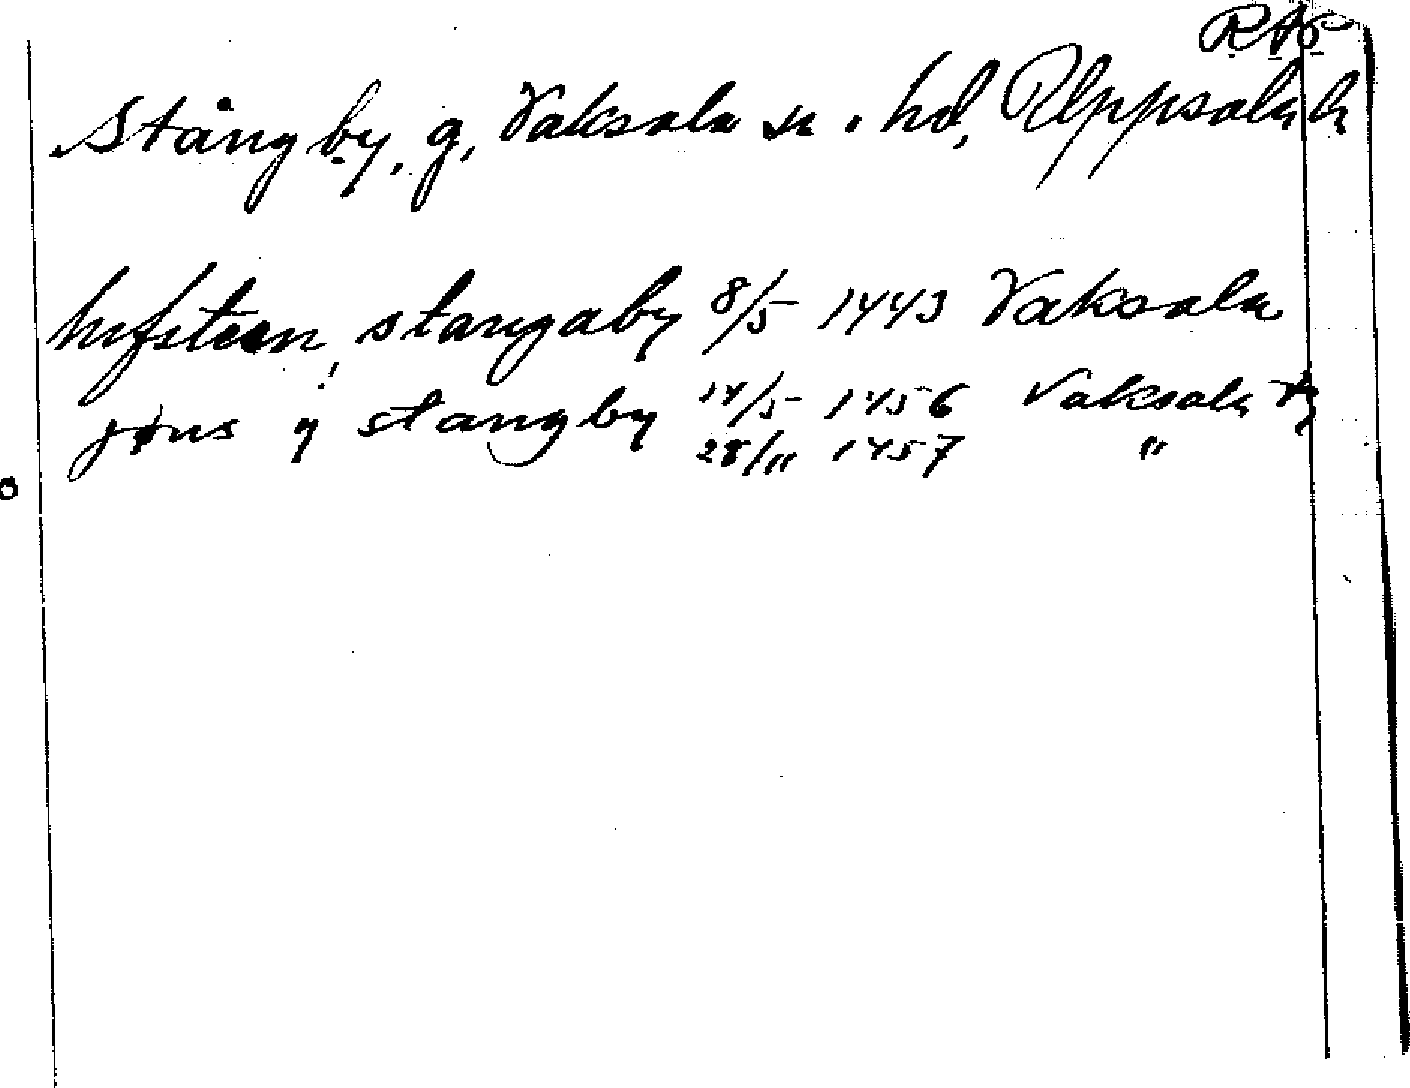 RAP
Stångby, g, Vaksala sn. hd, Uppsala l.
stangaby 8/5 1443 Vaksala
!
jøns y stangby 14/5 1456 Vaksala tg
28/11 1457 "